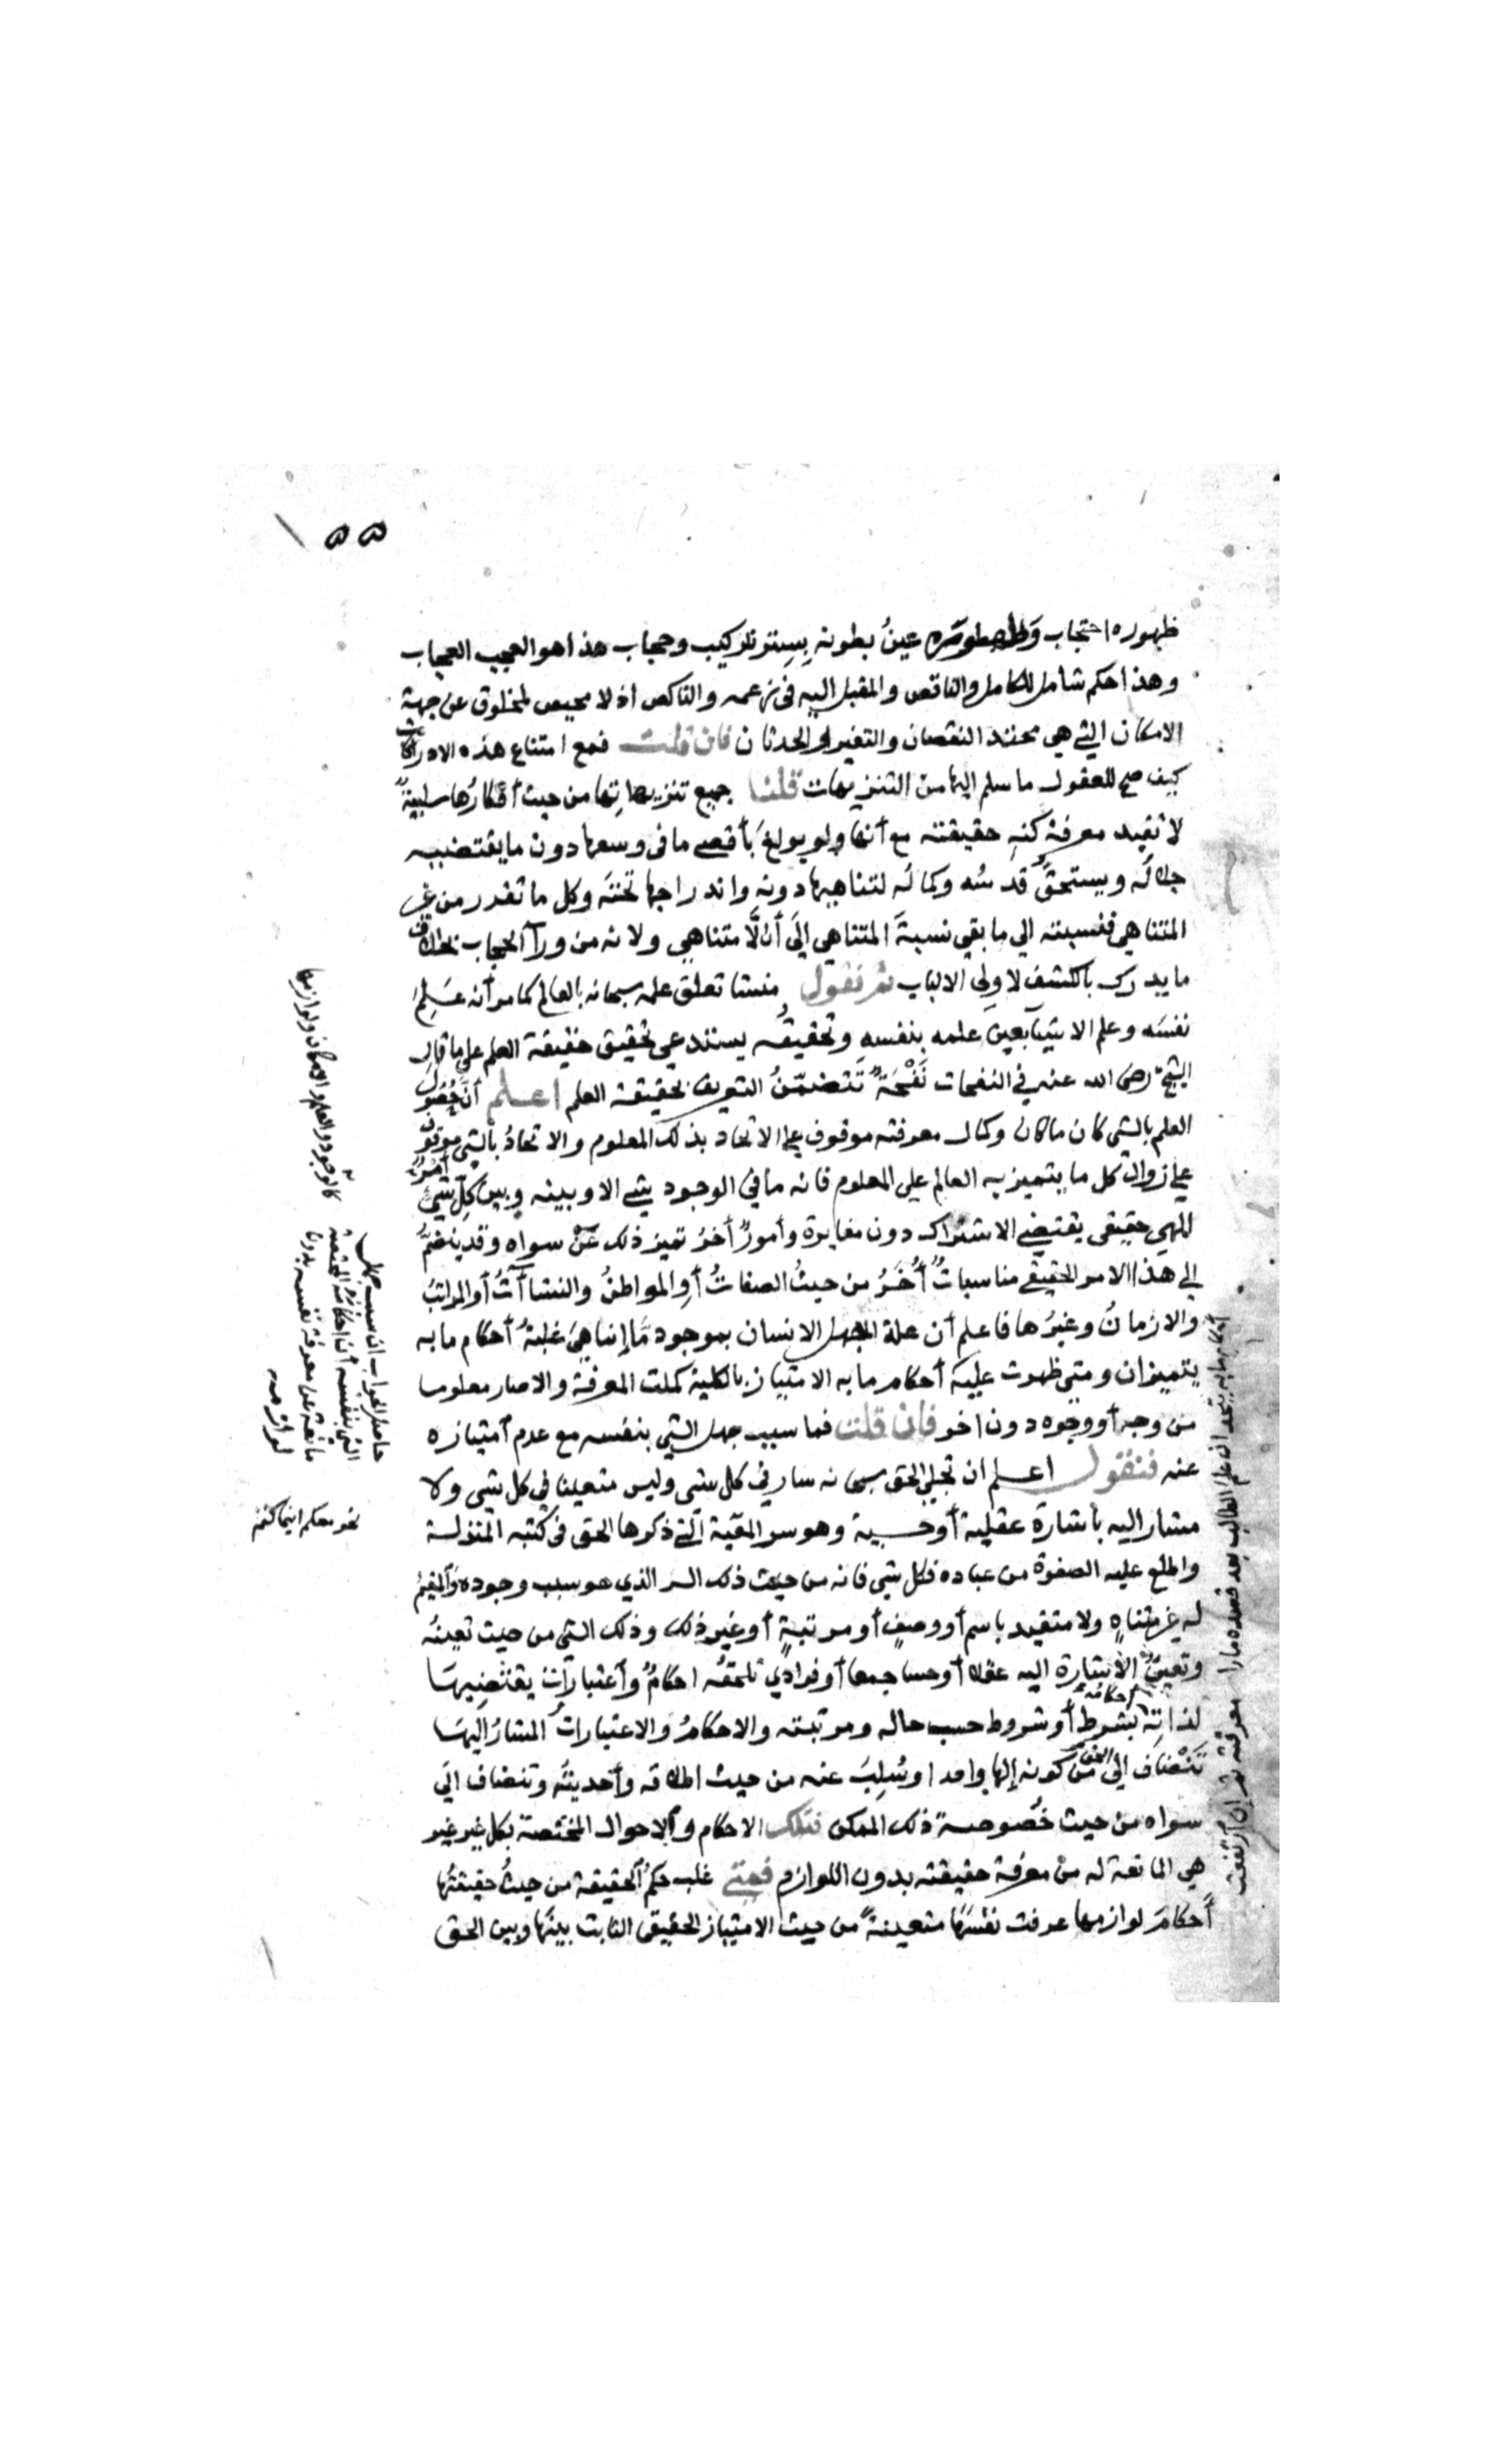 ٥٥
ظهوره احتجاب وظهوره عينُ بطونه بستر تركيب وحجاب هذا هو العجيب العجاب
وهذا حكم شامل للكامل والناقص والمقبل اليه في زعمه والناكص اذ لا محيص لمخلوق عن جهة
الامكان التي هي محتد النقصان والتغير والحدثان فان قلت فمع امتناع هذه الادراكات
كيف صح للعقول ما سلم اليها من التنزيهات قلنا جميع تنزيهاتِها من حيث أفكارُها سلبيةٌ
لا تفيد معرفة كنه حقيقته مع أنها ولو بولغ بأقصى ما في وسعها دون ما يقتضيه
جلاله ويستحقُّ قدسُه وكماله لتناهيها دونه واندراجها تحته وكل ما تقدر من غير
المتناهي فنسبته الي ما بقي نسبةَ المتناهي إلى أن لَا متناهي ولانه من ورآ الحجاب بخلاف
ما يدرك بالكشف لاولي الالباب ثم نقول منشا تعلق علمه سبحانه بالعالم كما مر أنه عَلِمَ
نفسَه وعلم الاشيآ بعين علمه بنفسه وتحقيقُه يستدعي تحقيق حقيقة العلم على ما قال
الشيخ رضى الله عنه في النفحات نَفْحَةٌ تَتضمّنُ التعريف بحقيقة العلم اعلم أنَّ حُصُولَ
العلم بالشي كان ما كان وكمال معرفته موقوف على الاتحاد بذلك المعلوم والاتحادُ بالشي موقوف
على زوال كل ما يتميز به العالم على المعلوم فانه ما في الوجود شي الا وبينه وبين كل شي أمرٌ
الهي حقيقى يقتضي الاشتراك دون مغايرة وأمورٌ أخرُ تميز ذلك عن سواه وقد ينضمُّ
الي هذا الامر الحقيقي مناسباتٌ أُخَرُ من حيثُ الصفاتُ أو المواطنُ والنشاآتُ أو المراتبُ
والازمانُ وغيرُها فاعلم أن علة الجهل الانسان بموجود مَّا إنما هي غلبةُ أحكام ما به
يتميزان ومتى ظهرت عليه أحكام ما به الامتياز بالكلية كملت المعرفة والا صار معلوما
من وجه أو وجوه دون اخر فان قلت فما سبب جهل الشي بنفسه مع عدم امتيازه
عنه فنقول اعلم ان تجلي الحق سبحانه سار في كل شي وليس متعينا في كل شي ولا
مشار اليه باشارة عقلية أو حسية وهو سر المعية التي ذكرها الحق في كتبه المنزلة
واطلع عليه الصفوة من عباده فكل شي فانه من حيث ذلك السر الذي هو سبب وجوده والمقيمُ
له غير متناهٍ ولا متقيد باسم أو وصفٍ أو مرتبةٍ أو غير ذلك وذلك الشي من حيث تعينه
وتعينُ الاشارة اليه عقلا أو حسا جمعا أو فرادي تلحقُه احكامٌ وأعتبارات يقتضيها
لذاته احكامه بشرط أو شروط حسب حاله ومرتبته والاحكامُ والاعتباراتُ المشارُ اليها
تَنْضاف الى الحق من كونه إلها واحدا وسُلِبَ عنه من حيث اطلاقه وأحديتُه وتنضاف الى
سواه من حيث خُصوصة ذلك الممكن فتلك الاحكام والاحوال المختصة بكل غير غير
هي المانعة له من معرفة حقيقته بدون اللوازم فمتي غلب حكمُ الحقيقة من حيث حقيقتُها
أحكامَ لوازمها عرفت نفسَها متعينةً من حيث الامتياز الحقيقى الثابت بينها وبين الحق
كالوجود والعلم والامكان ولوازمها
حاصل الجواب ان سبب جهل
الشي بنفسه أن احكامه المختصة به
مانعة عن معرفة نفسه بدون
لوازمه
نحو معكم اينما كنتم